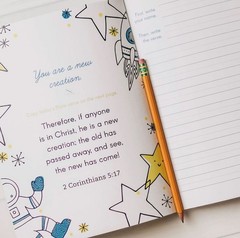 You are a new
creation
Therefore, if anyone
is in Christ, he is a new
creation; the old has
passed away, and see,
the new has come!
2 Corinthians 5:17